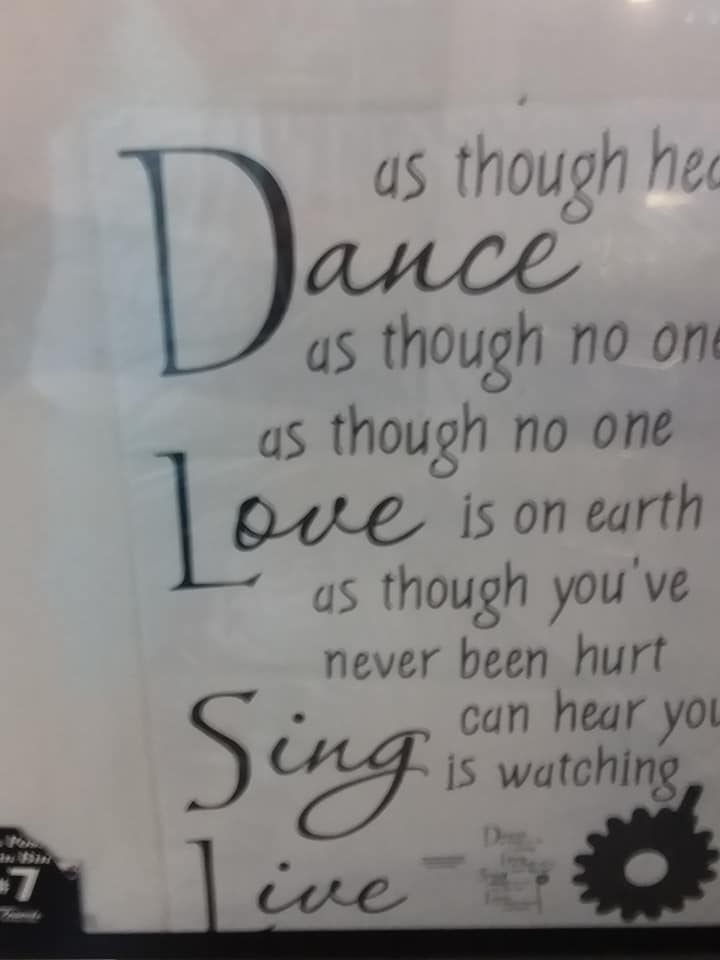 as though hea
Dance
as though no one
as though no one
Love is on earth
as though you've
never been hurt
can hear you
Sing is watching
Live
#7